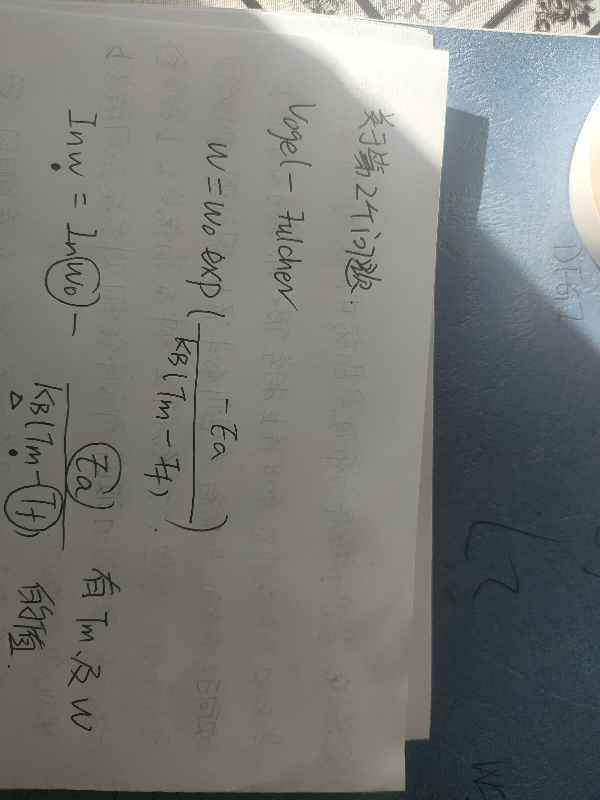 关于第2个问题.
Vogel - Fulcher
w = w₀ exp ( -Ea / kB(Tm - Tf) ) .
In w = In w₀ - Ea / kB(Tm - Tf) 有 Tm 及 w
的值.